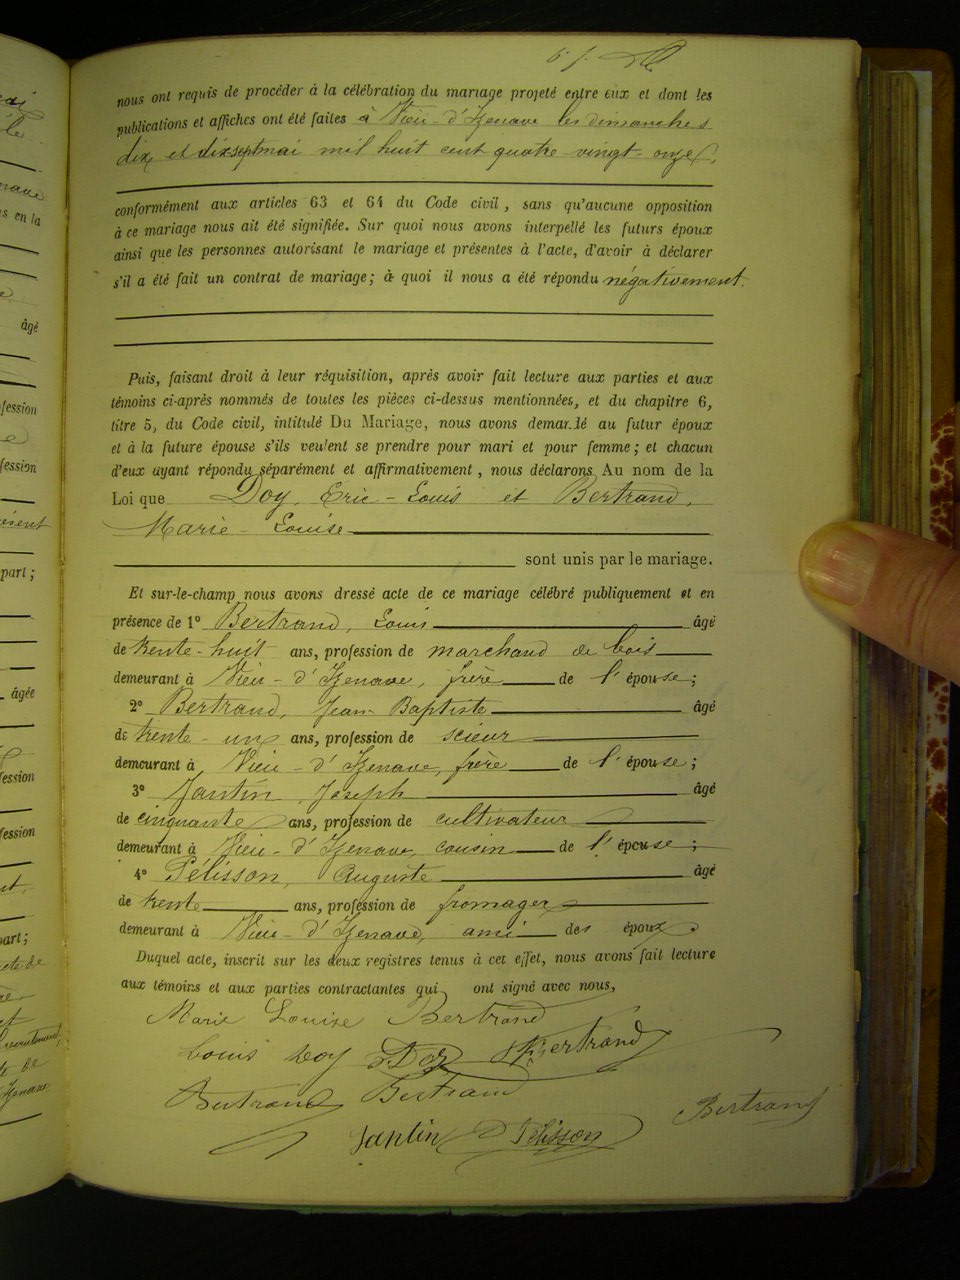 nous ont requis de procéder à la célébration du mariage projeté entre eux et dont les
publications et affiches ont été faites à Vieu-d'Izenave les dimanches
dix et dix sept mai mil huit cent quatre-vingt-onze,
conformément aux articles 63 et 64 du Code civil, sans qu'aucune opposition
à ce mariage nous ait été signifiée. Sur quoi nous avons interpellé les futurs époux
ainsi que les personnes autorisant le mariage et présentes à l'acte, d'avoir à déclarer
s'il a été fait un contrat de mariage; à quoi il nous a été répondu négativement.
Puis, faisant droit à leur réquisition, après avoir fait lecture aux parties et aux
témoins ci-après nommés de toutes les pièces ci-dessus mentionnées, et du chapitre 6,
titre 5, du Code civil, intitulé Du Mariage, nous avons demandé au futur époux
et à la future épouse s'ils veulent se prendre pour mari et pour femme; et chacun
d'eux ayant répondu séparément et affirmativement, nous déclarons Au nom de la
Loi que Doy, Eric-Louis et Bertrand,
Marie-Louise
sont unis par le mariage.
Et sur-le-champ nous avons dressé acte de ce mariage célébré publiquement et en
présence de 1° Bertrand, Louis âgé
de trente-huit ans, profession de marchand de bois
demeurant à Vieu-d'Izenave, frère de l'épouse;
2° Bertrand, Jean-Baptiste âgé
de trente-un ans, profession de scieur
demeurant à Vieu-d'Izenave, frère de l'épouse;
3° Jantin, Joseph âgé
de cinquante ans, profession de cultivateur
demeurant à Vieu-d'Izenave, cousin de l'épouse;
4° Pélisson, Auguste âgé
de trente ans, profession de fromager
demeurant à Vieu-d'Izenave, ami des époux.
Duquel acte, inscrit sur les deux registres tenus à cet effet, nous avons fait lecture
aux témoins et aux parties contractantes qui ont signé avec nous,
Marie Louise Bertrand
Louis Doy Bertrand
Bertrand Bertrand Bertrand
Jantin Pélisson